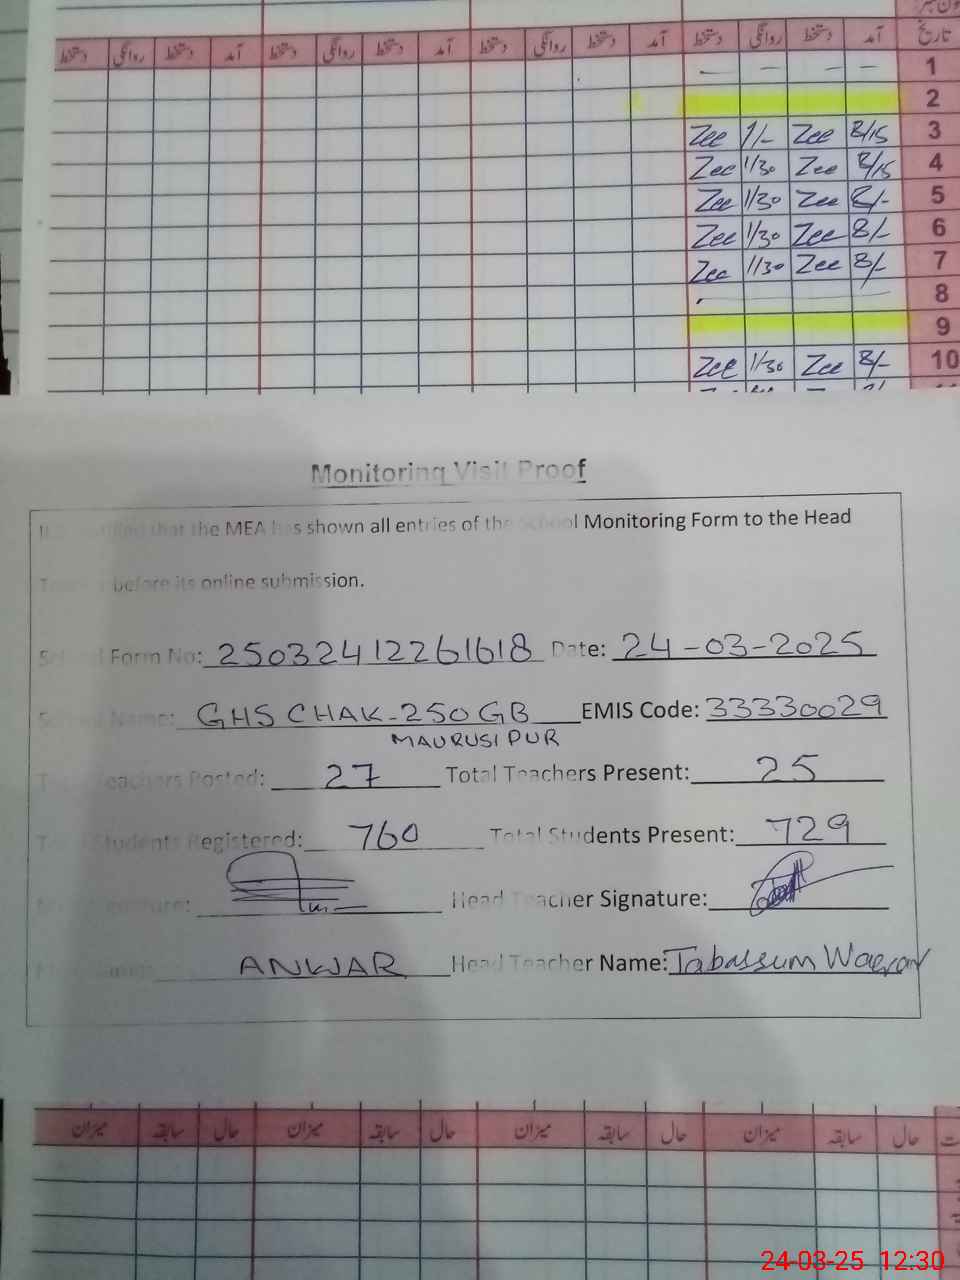 تاریخ آمد دستخط روانگی دستخط آمد دستخط روانگی دستخط آمد دستخط روانگی دستخط آمد دستخط روانگی دستخط
1 — — — —
2
3 8/15 Zee 1/- Zee
4 8/15 Zee 1/30 Zee
5 8/- Zee 1/30 Zee
6 8/- Zee 1/30 Zee
7 8/- Zee 1/30 Zee
8
9
10 8/- Zee 1/30 Zee
Monitoring Visit Proof
that the MEA has shown all entries of the School Monitoring Form to the Head
before its online submission.
Form No: 25032412261618 Date: 24-03-2025
Name: GHS CHAK-250 GB EMIS Code: 33330029
MAURUSI PUR
Teachers Posted: 27 Total Teachers Present: 25
Students Registered: 760 Total Students Present: 729
Head Teacher Signature:
ANWAR Head Teacher Name: Tabassum
حال سابقہ میزان حال سابقہ میزان حال سابقہ میزان حال سابقہ میزان
24-03-25 12:30